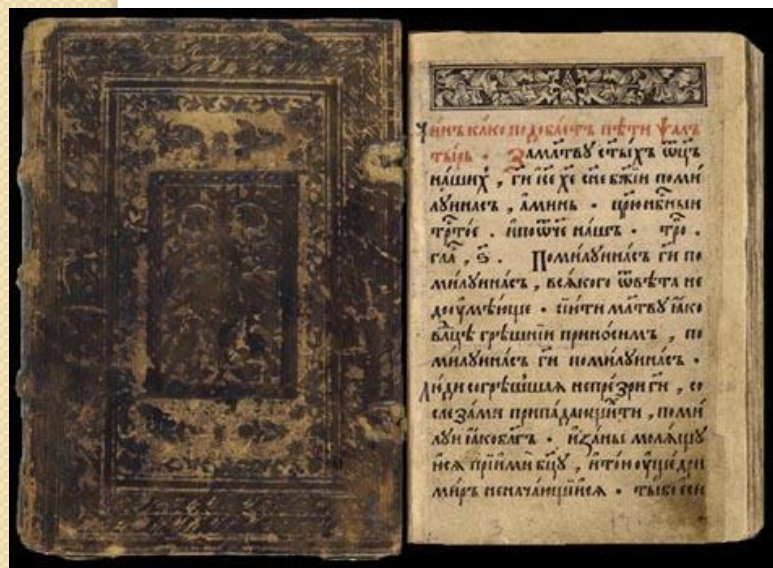 чи́нъ ка́ко подоба́етъ пѣ́ти ѱал
ты́рь · За мл҃тву ст҃ы́хъ ѿц҃ъ
на́шихъ , гн҃ и҆с҃е х҃е сн҃е бж҃іи поми́
лꙋи на́съ , а҆ми́нь · цр҃ю нбⷭ҇ныи
трⷭ҇то́е · и҆ по ѿч҃е на́шъ · тро ·
гла́ , ѕ҃ · Поми́лꙋи на́съ гн҃ по
ми́лꙋи на́съ , вся́кого ѿвѣ́та не
доꙋмѣ́юще · сїи́ ти мл҃твꙋ ꙗ҆́ко
влⷣцѣ грѣ́шнїи прино́симъ , по
ми́лꙋи на́съ гн҃ поми́лꙋи на́съ ·
лю́ди согрѣ́шшая не пре́зри гн҃ , со
слеза́ми припа́дающи́ ти , поми́
лꙋи ꙗ҆́ко бл҃гъ · и҆ за ны̀ моля́щꙋ
ися прїими́ бц҃ꙋ , и҆ тою̀ ꙋ҆ще́дри
ми́ръ